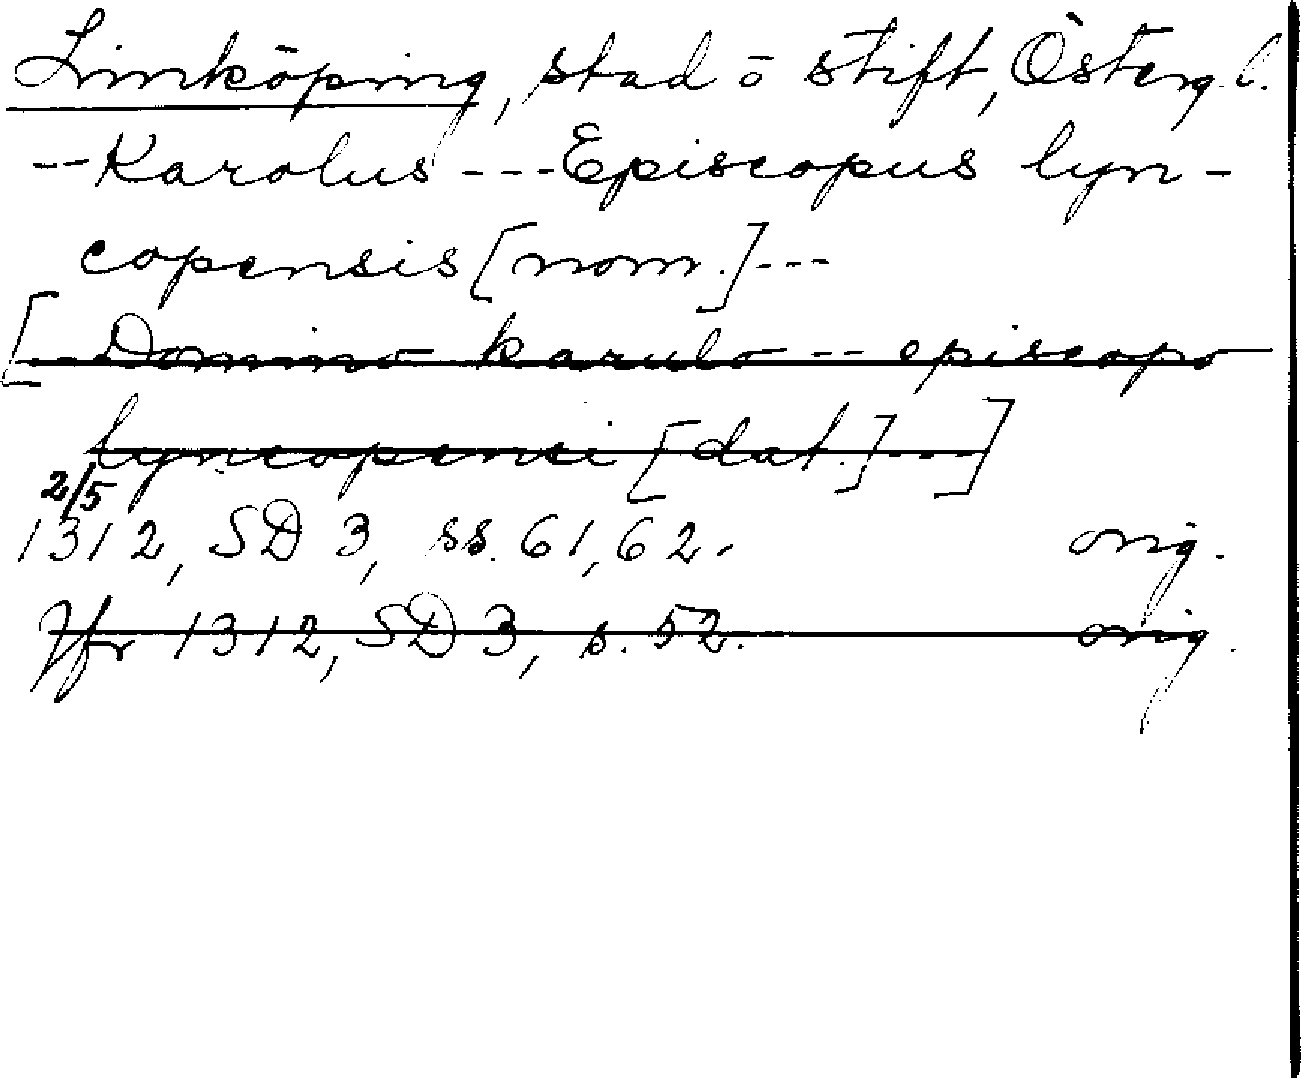 Linköping, stad o stift, Österg. l.
-- Karolus --- Episcopus lyn-
copensis [nom.] ---
[-- Domino karulo -- episcopo
lyncopensi [dat.] ---]
2/5
1312, SD 3, ss. 61, 62. orig.
Jfr 1312, SD 3, s. 52. orig.